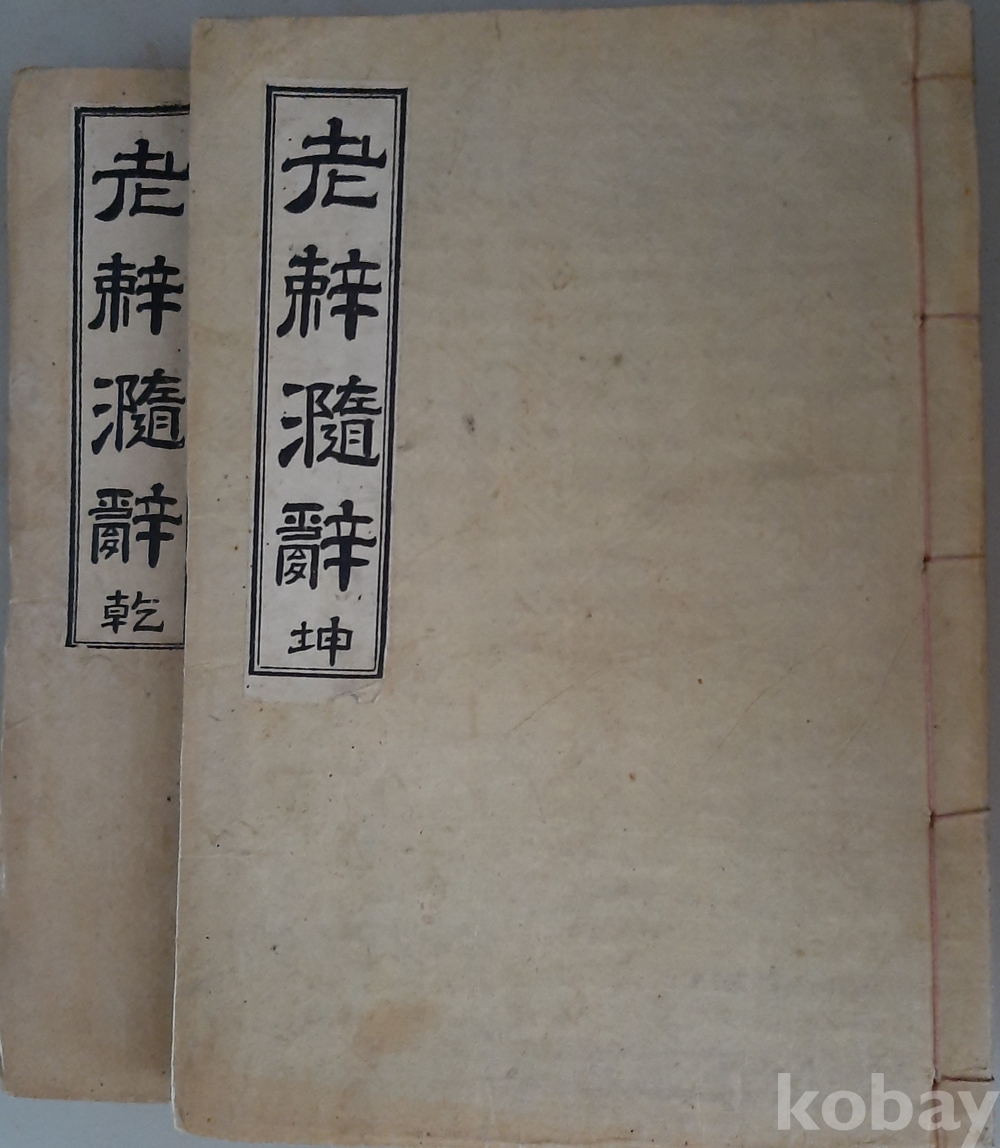 老辢瀡辭 乾
老辢瀡辭 坤
kobay